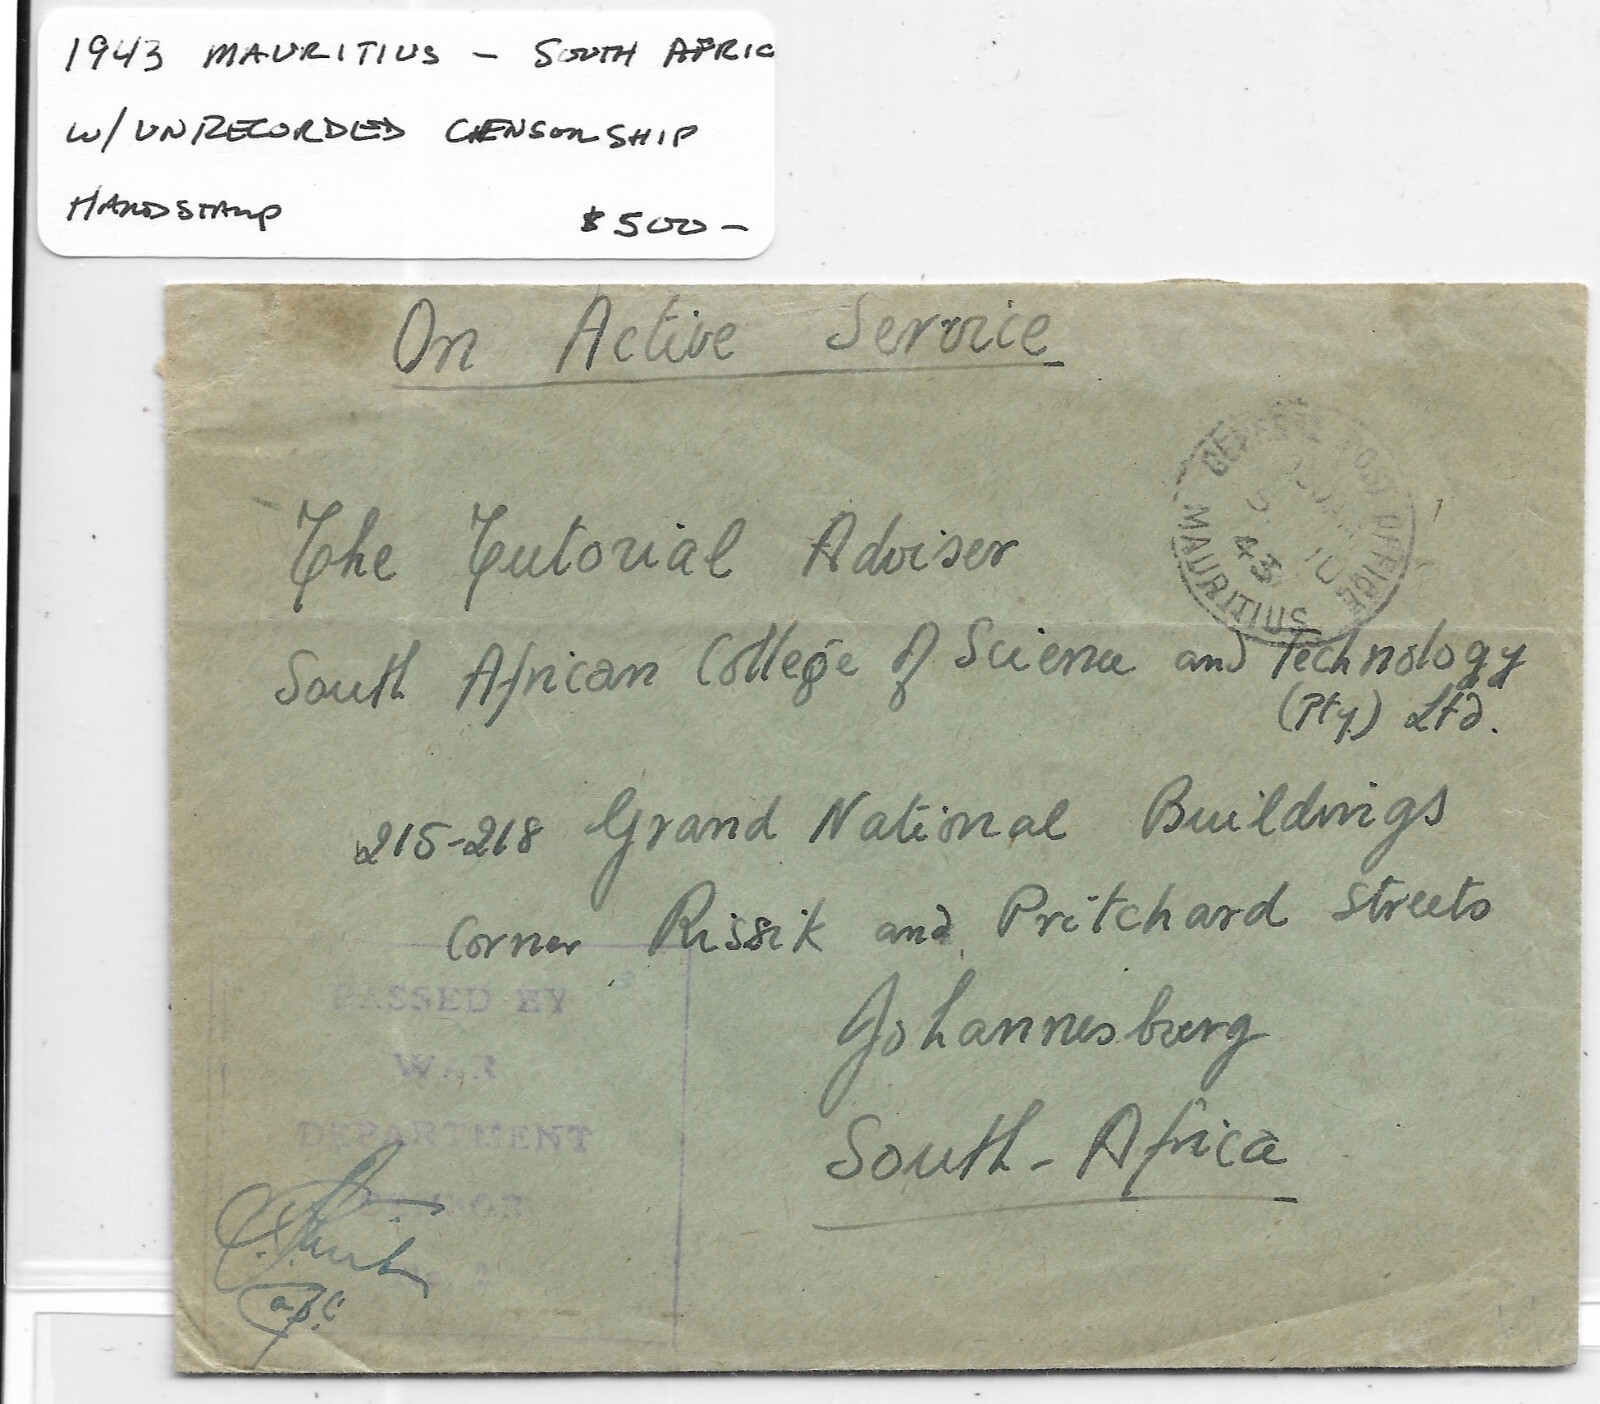 1943 MAURITIUS - SOUTH AFRIC
W/ UNRECORDED CENSORSHIP
HANDSTAMP $500-
On Active Service
GENERAL POST OFFICE
10
43
MAURITIUS
The Tutorial Adviser
South African College of Science and Technology
(Pty) Ltd.
215-218 Grand National Buildings
Corner Rissik and Pritchard Streets
Johannesburg
South-Africa
PASSED BY
WAR
DEPARTMENT
CENSOR